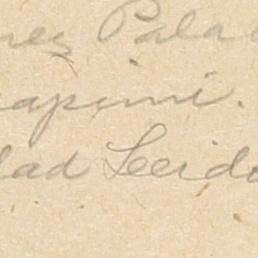 nez Pala
apini.
lad Leido